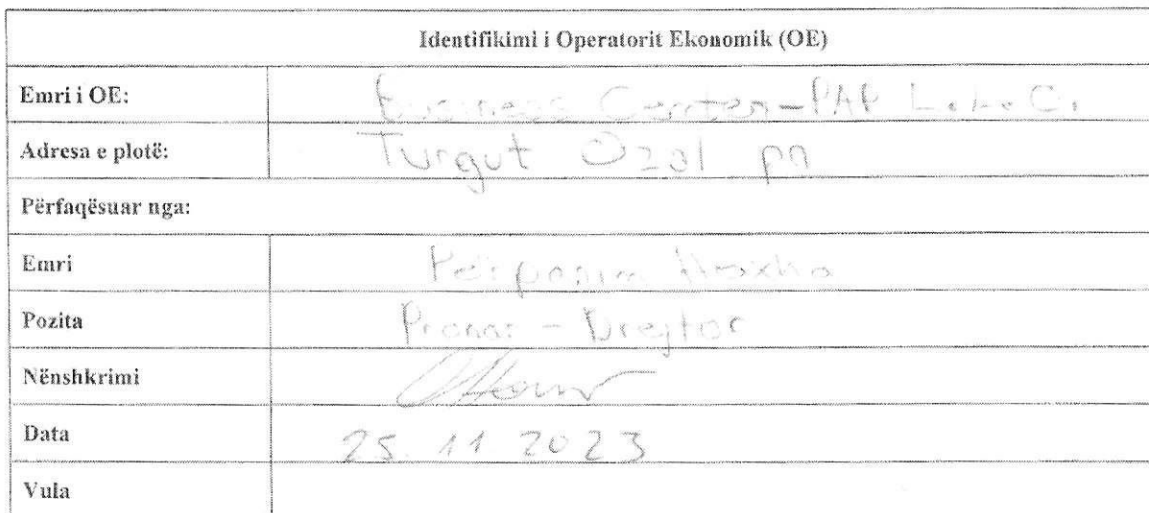 Identifikimi i Operatorit Ekonomik (OE)
Emri i OE: Business Center-PAP
Adresa e plotë: Turgut Ozal pn
Përfaqësuar nga:
Emri
Pozita Pronar - Drejtor
Nënshkrimi
Data 25.11 2023
Vula